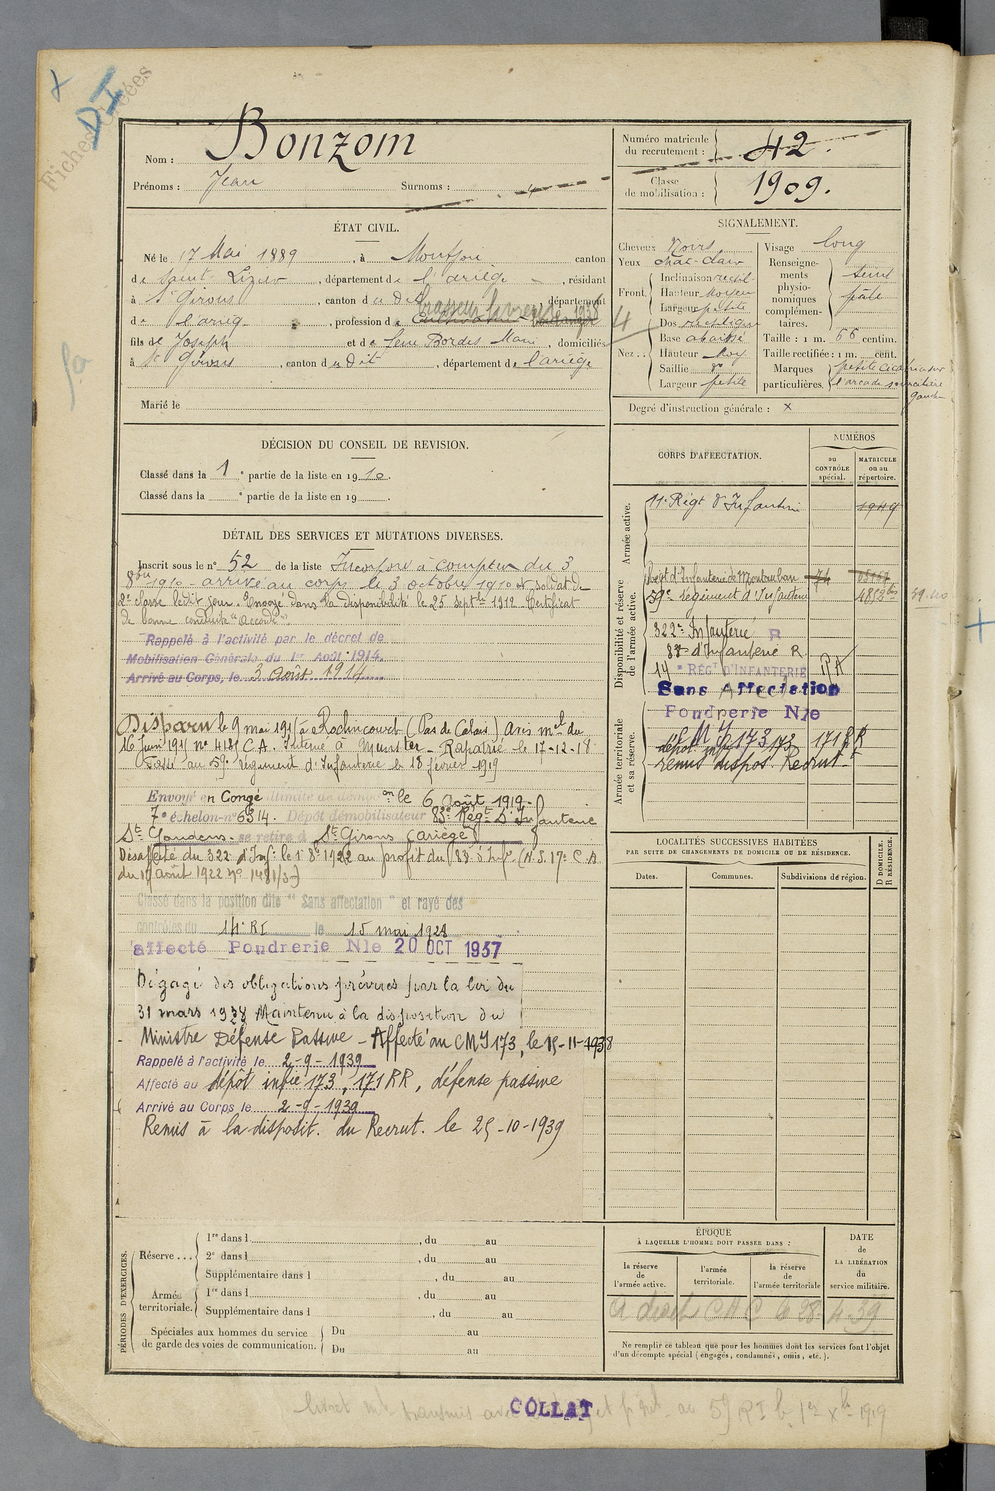 Fiches
DI
Nom : Bonzom
Prénoms : Jean Surnoms :
Numéro matricule du recrutement : 42.
Classe de mobilisation : 1909.
ÉTAT CIVIL.
Né le 17 Mai 1889, à Montjoi canton
de Saint-Lizier, département de l'ariège, résidant
à St Girons, canton du dit département
d l'arieg, profession de
fils de Joseph et de Bordes Marie, domiciliés
à St Girons, canton du dit, département de l'ariège
Marié le
SIGNALEMENT.
Cheveux Noirs
Yeux chat-clair
Front. Inclinaison rectil
Hauteur Moyen
Largeur petite
Nez... Dos rectiligne
Base abaissé
Hauteur Moy
Saillie
Largeur petite
Visage long
Renseignements physionomiques complémentaires. teint pâle
Taille : 1 m. 66 centim.
Taille rectifiée : 1 m. cent.
Marques particulières. petite cicatrice sur l'arcade sourcilière gauche
Degré d'instruction générale : x
DÉCISION DU CONSEIL DE REVISION.
Classé dans la 1e partie de la liste en 1910.
Classé dans la e partie de la liste en 19
DÉTAIL DES SERVICES ET MUTATIONS DIVERSES.
Inscrit sous le n° 52 de la liste Incorporé à compter du 3
8bre 1910 - arrivé au corps le 3 octobre 1910 et soldat de
2e classe ledit jour. Envoyé dans la disponibilité le 25 septbre 1912. Certificat
de bonne conduite "Accordé".
Rappelé à l'activité par le décret de
Mobilisation Générale du 1er Août 1914.
Arrivé au Corps, le 3 août 1914
Disparu le 9 mai 1915 à Roclincourt (Pas de Calais) Avis mel du
16 juin 1915 n° 4181 C.A. Interné à Munster - Rapatrié le 17-12-18
Passé au 59e régiment d'Infanterie le 18 février 1919
Envoyé en Congé illimité de démon le 6 Août 1919-
7e échelon-n° 6314. Dépôt démobilisateur 83e Régt d'Infanterie
St Gaudens - se retire à St Girons (ariège)
Désaffecté du 322 d'Infie le 1er 8e 1922 au profit du 83e d'Infie (N.S. 17e C.A.
du 11 août 1922 n° 1481/3)
Classé dans la position dite "Sans affectation" et rayé des
contrôles du 14e RI le 15 mai 1928
affecté Poudrerie Nle 20 OCT 1937
Dégagé des obligations prévues par la loi du
31 mars 1928 Maintenu à la disposition du
Ministre Défense Passive - Affecté au CMI 173, le 15-11-1938
Rappelé à l'activité le 2-9-1939
Affecté au dépôt infie 173, 171 RR, défense passive
Arrivé au Corps le 2-9-1939
Remis à la disposit. du Recrut. le 25-10-1939
CORPS D'AFFECTATION.
NUMÉROS
au CONTRÔLE spécial.
MATRICULE ou au répertoire.
Armée active.
11e Régt d'Infanterie 1949
Disponibilité et réserve de l'armée active.
Régt d'Infanterie de Montauban 74
59e Régiment d'Infanterie 4853 bis
322e Infanterie R
83e d'Infanterie R
14e RÉGT D'INFANTERIE RA
Sans Affectation
Poudrerie Nle
Armée territoriale et sa réserve.
C M I 173 171 RR
dépôt infie 173
remis dispos Recrut.
LOCALITÉS SUCCESSIVES HABITÉES
PAR SUITE DE CHANGEMENTS DE DOMICILE OU DE RÉSIDENCE.
Dates. Communes. Subdivisions de région. D DOMICILE. R RÉSIDENCE.
PÉRIODES D'EXERCICES.
Réserve... 1re dans l , du au
2e dans l , du au
Supplémentaire dans l , du au
Armée territoriale. 1re dans l , du au
Supplémentaire dans l , du au
Spéciales aux hommes du service de garde des voies de communication. Du au
Du au
ÉPOQUE
À LAQUELLE L'HOMME DOIT PASSER DANS :
la réserve de l'armée active.
l'armée territoriale.
la réserve de l'armée territoriale
DATE de LA LIBÉRATION du service militaire.
A droit C A C le 28-4-39
Ne remplir ce tableau que pour les hommes dont les services font l'objet
d'un décompte spécial (engagés, condamnés, omis, etc.).
COLLAT
au 59 RI le 1er Xbre 1919